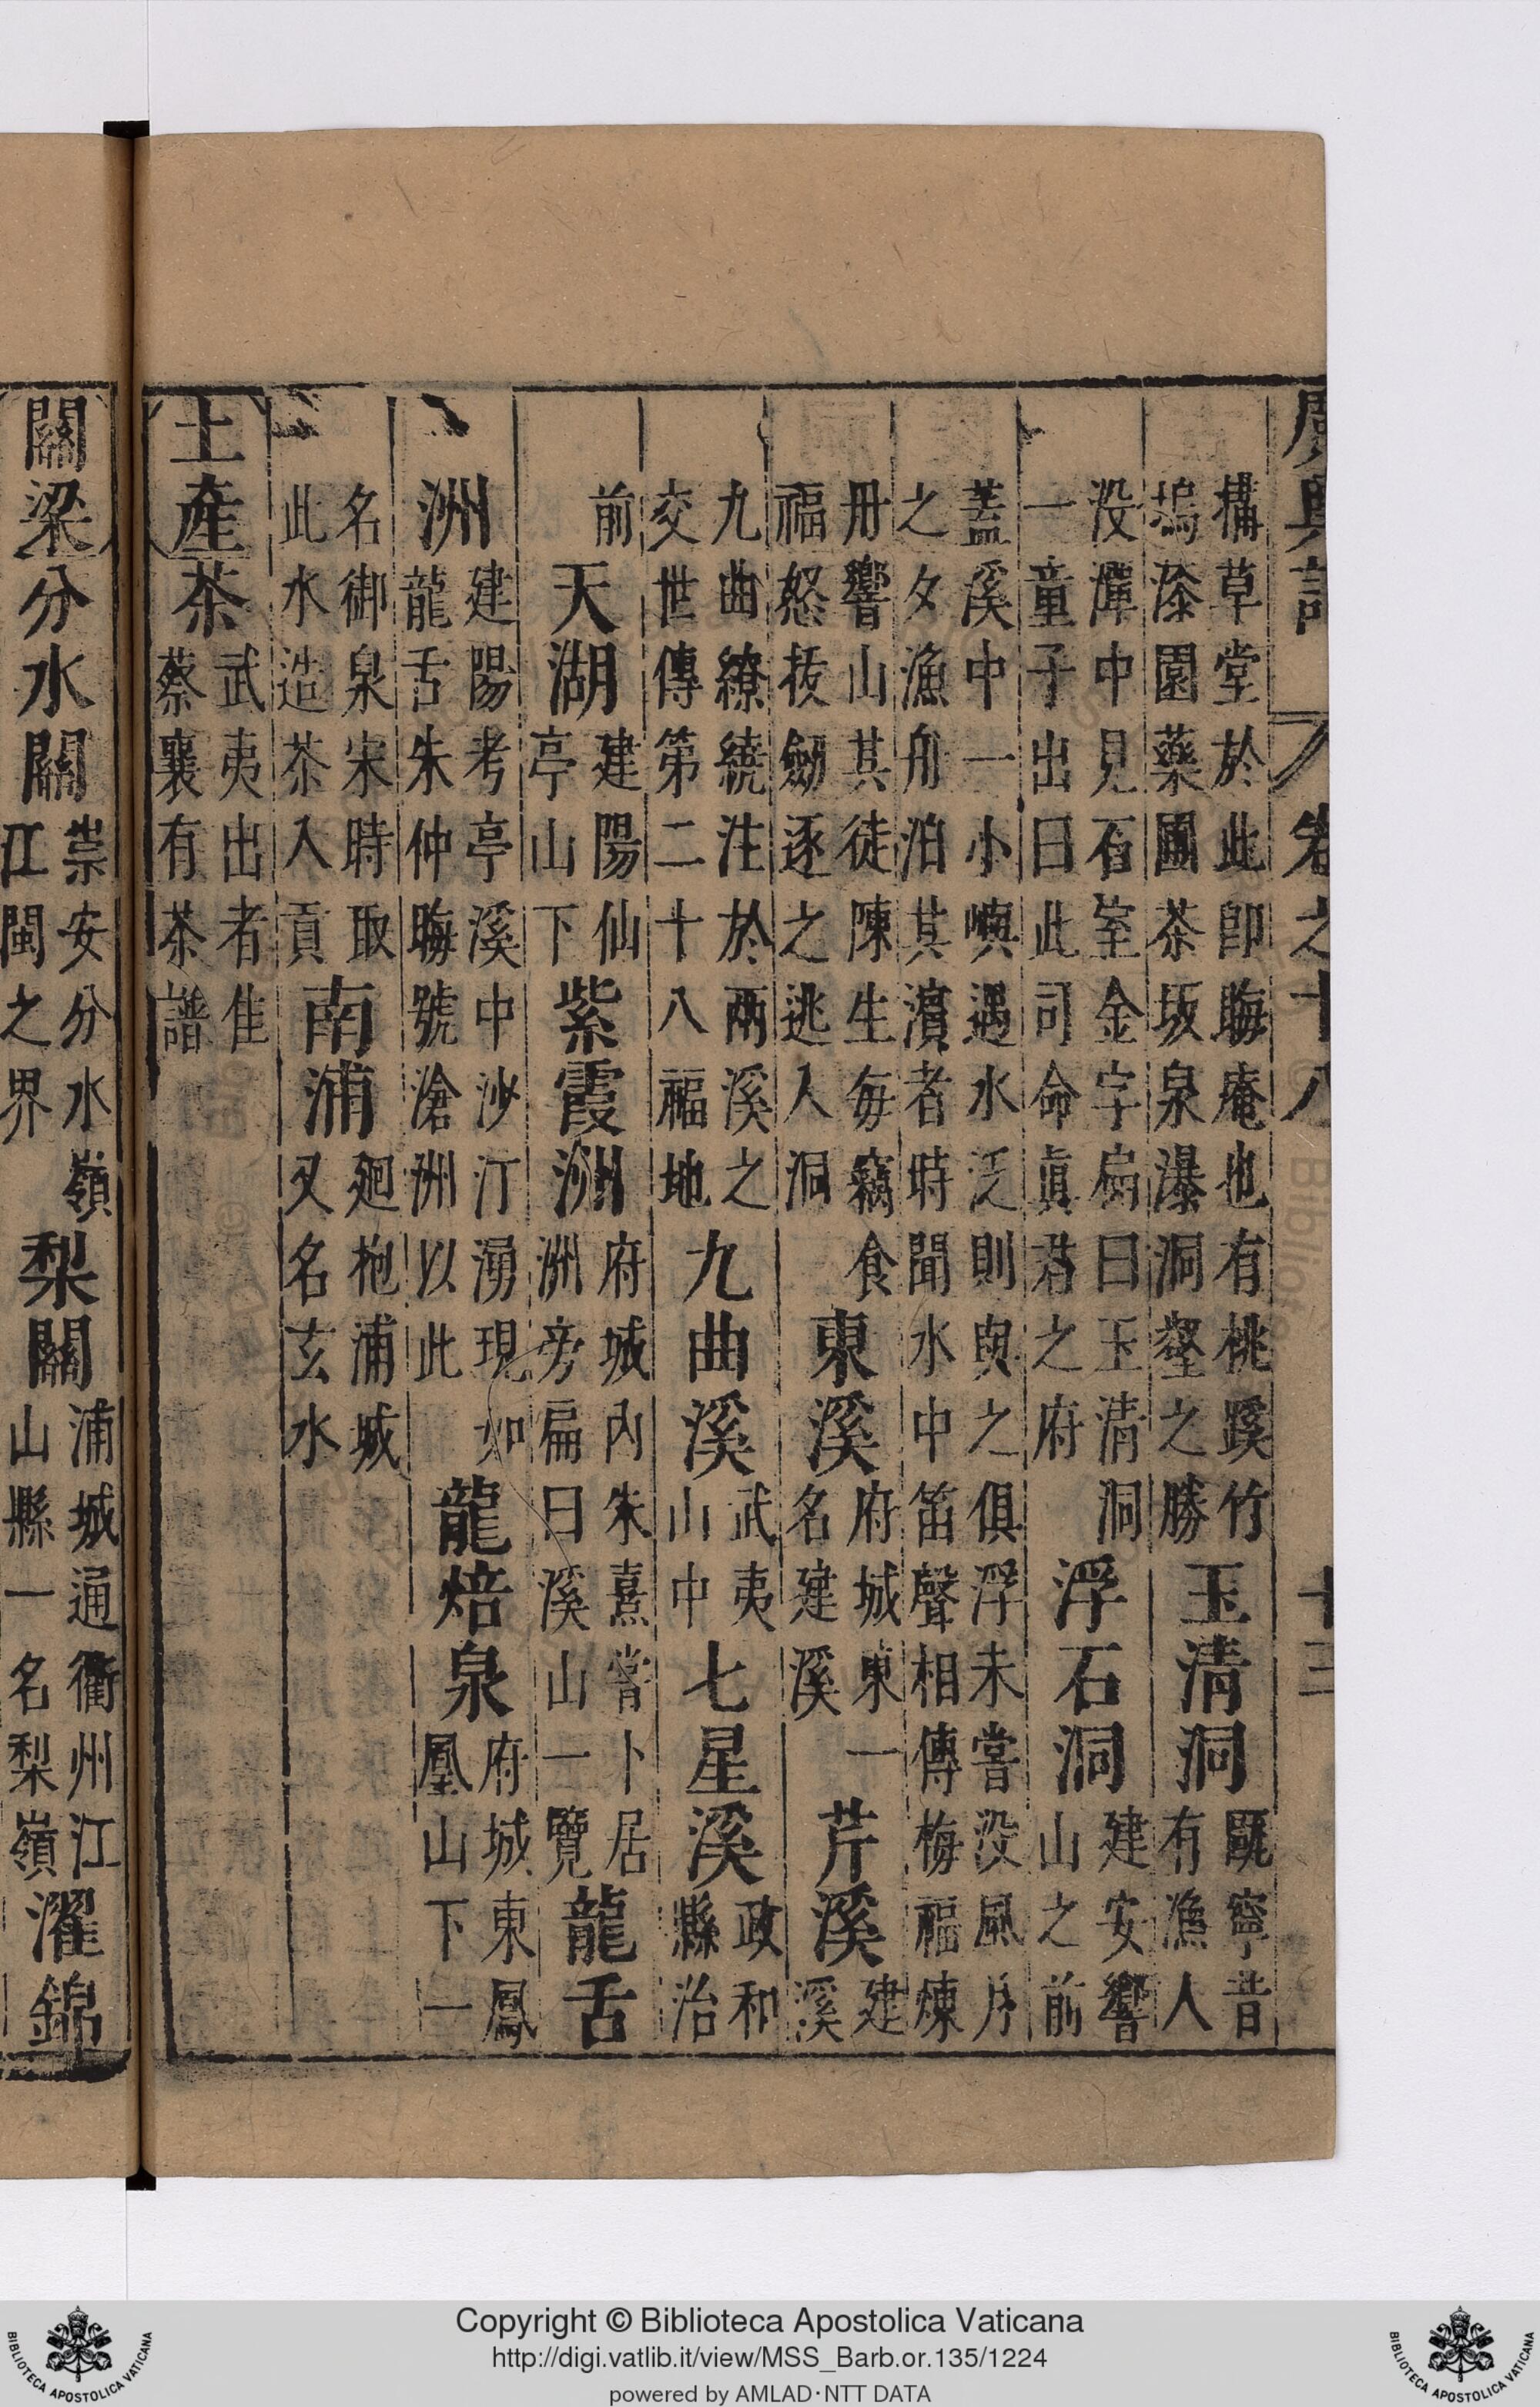 廣輿記 卷之十八 十三
構草堂於此卽晦庵也有桃蹊竹
塢漆園藥圃茶坂泉瀑洞壑之勝
玉清洞
甌寧昔
有漁人
没潭中見石室金字扁曰玉清洞
一童子出曰此司命眞君之府
浮石洞
建安響
山之前
蓋溪中一小嶼遇水泛則與之俱浮未嘗没風月
之夕漁舟泊其濵者時聞水中笛聲相傳梅福煉
丹響山其徒陳生每竊食
福怒拔劒逐之逃入洞
東溪
府城東一
名建溪
芹溪
建
溪
九曲繚繞注於兩溪之
交世傳第二十八福地
九曲溪
武夷
山中
七星溪
政和
縣治
前
天湖
建陽仙
亭山下
紫霞洲
府城内朱熹嘗卜居
洲旁扁曰溪山一覽
龍舌
洲
建陽考亭溪中沙汀湧現如
龍舌朱仲晦號滄洲以此
龍焙泉
府城東鳳
凰山下一
名御泉宋時取
此水造茶入貢
南浦
廻抱浦城
又名玄水
土產
茶
武夷出者佳
蔡襄有茶譜
關梁
分水關
崇安分水嶺
江閩之界
梨關
浦城通衢州江
山縣一名梨嶺
濯錦
Copyright © Biblioteca Apostolica Vaticana
http://digi.vatlib.it/view/MSS_Barb.or.135/1224
powered by AMLAD·NTT DATA
BIBLIOTECA APOSTOLICA VATICANA
BIBLIOTECA APOSTOLICA VATICANA